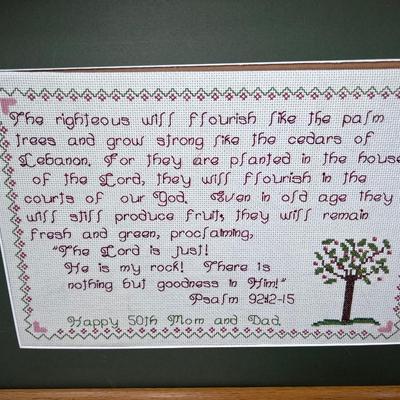 The righteous will flourish like the palm
trees and grow strong like the cedars of
Lebanon. For they are planted in the house
of the Lord, they will flourish in the
courts of our God. Even in old age they
will still produce fruit, they will remain
fresh and green, proclaiming,
"The Lord is just!
He is my rock! There is
nothing but goodness in Him!"
Psalm 92:12-15
Happy 50th Mom and Dad